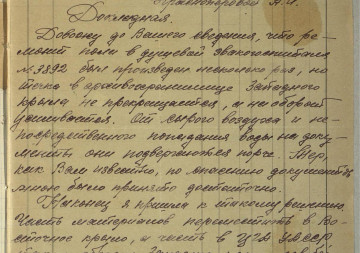 А.И.
Докладная.
Довожу до Вашего сведения, что ре-
монт пола в душевой эвакогоспиталя
№ 3892 был произведен несколько раз, но
течка в архивохранилище Западного
крыла не прекращается, а наоборот
усиливается. От сырого воздуха и не-
посредственного попадания воды на доку-
менты они подвергаются порче. Мер,
как Вам известно, по спасению документов
мною было принято достаточно.
Наконец я пришла к такому решению.
Часть материалов переместить в Во-
сточное крыло, и часть в ЦГА УАССР